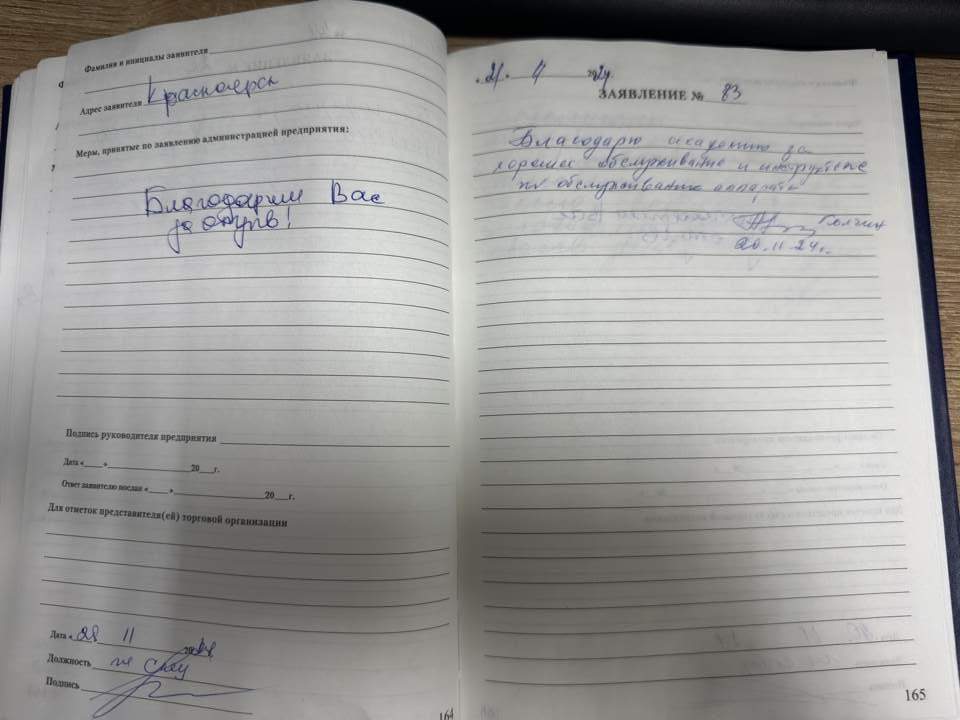 Фамилия и инициалы заявителя
Адрес заявителя Красноярск
Меры, принятые по заявлению администрацией предприятия:
Благодарим Вас
за отзыв!
Подпись руководителя предприятия
Дата «___» ___ 20__г.
Ответ заявителю послан «___» ___ 20__г.
Для отметок представителя(ей) торговой организации
Дата « 28 11 20
Должность
Подпись
164
21. 11 2024.
ЗАЯВЛЕНИЕ № 83
Благодарю за
хорошее обслуживание и
по обслуживанию аппарата
20.11.24г.
165